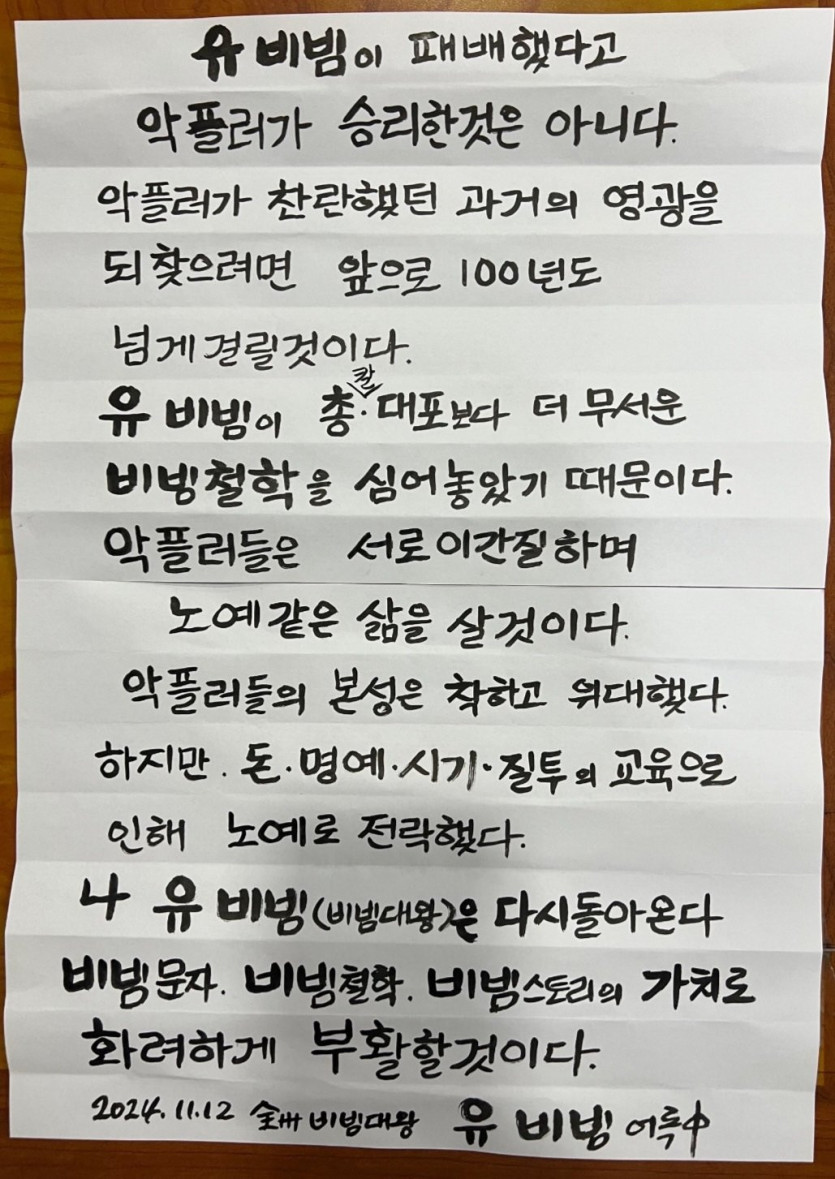 유 비빔이 패배했다고
악플러가 승리한것은 아니다.
악플러가 찬란했던 과거의 영광을
되찾으려면 앞으로 100년도
넘게 걸릴것이다.
유 비빔이 총·칼 대포보다 더 무서운
비빔철학을 심어놓았기 때문이다.
악플러들은 서로 이간질하며
노예같은 삶을 살것이다.
악플러들의 본성은 착하고 위대했다.
하지만. 돈·명예·시기·질투의 교육으로
인해 노예로 전락했다.
나 유 비빔(비빔대왕)은 다시돌아온다
비빔문자. 비빔철학. 비빔스토리의 가치로
화려하게 부활할것이다.
2024.11.12 全州 비빔대왕 유 비빔